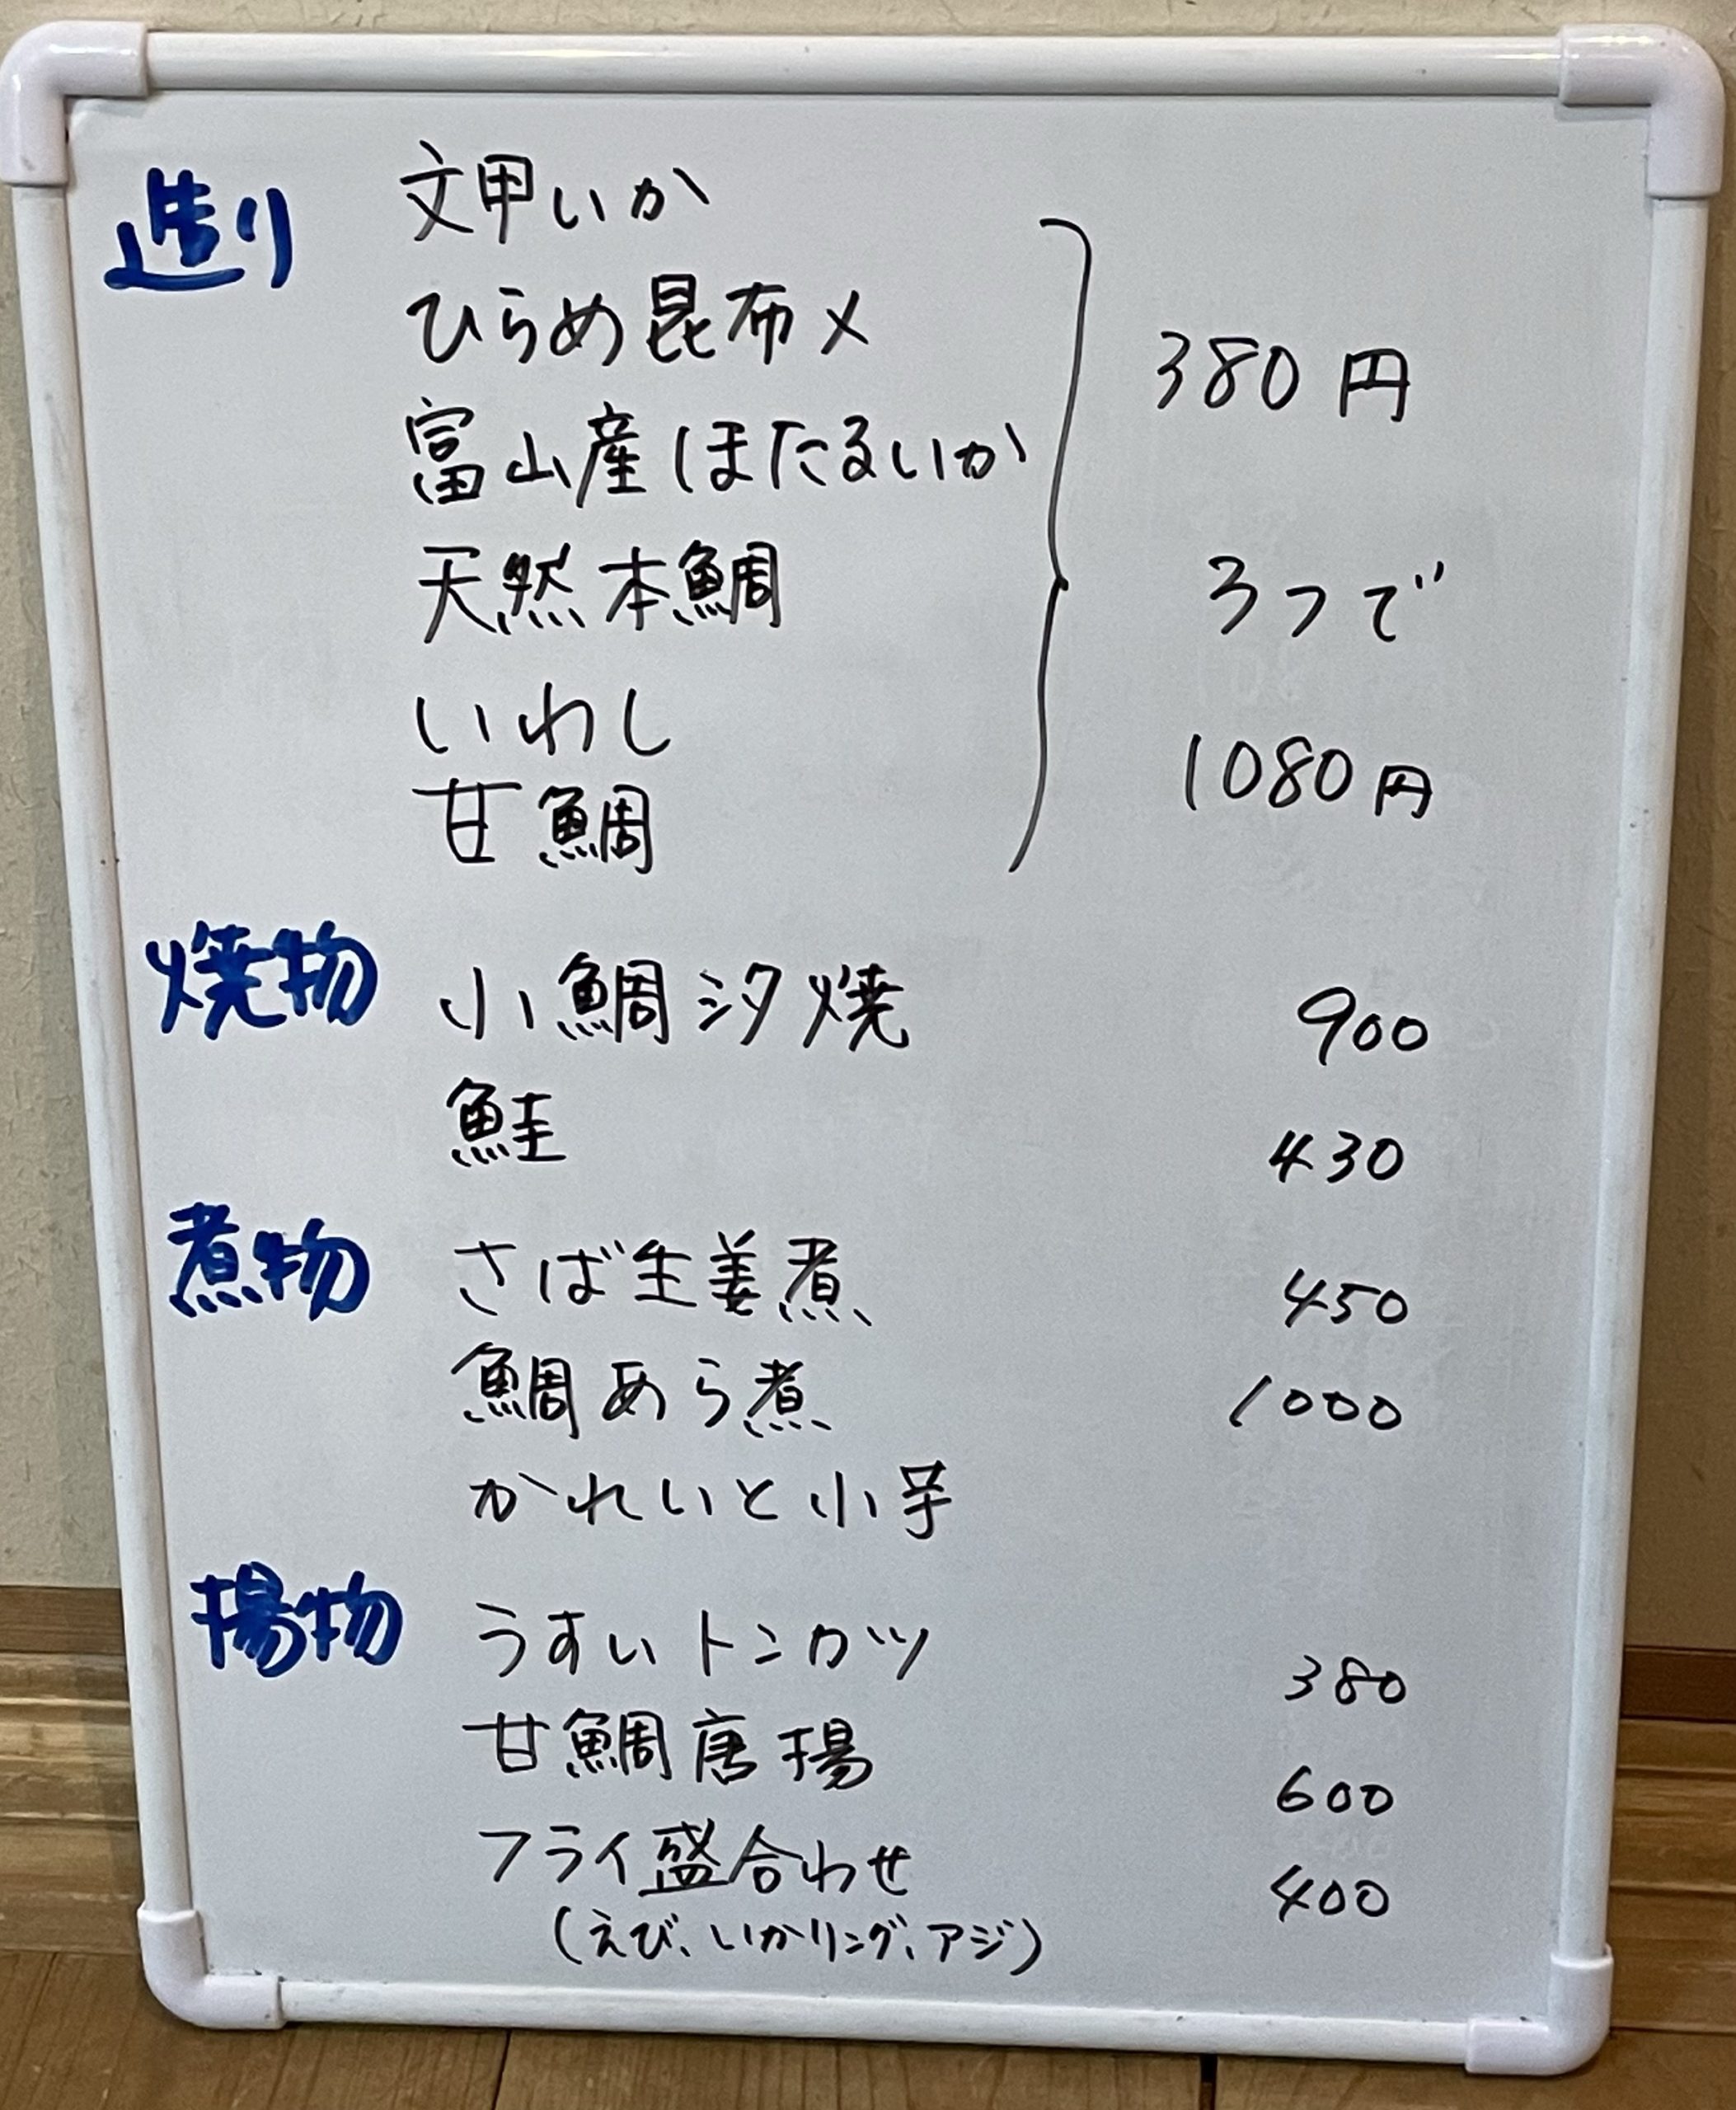 造り 文甲いか
ひらめ昆布〆
富山産ほたるいか
380円
天然本鯛
3つで
いわし
1080円
甘鯛
焼物 小鯛汐焼 900
鮭 430
煮物 さば生姜煮 450
鯛あら煮 1000
かれいと小芋
揚物 うすいトンカツ 380
甘鯛唐揚 600
フライ盛合わせ 400
(えび、いかリング、アジ)